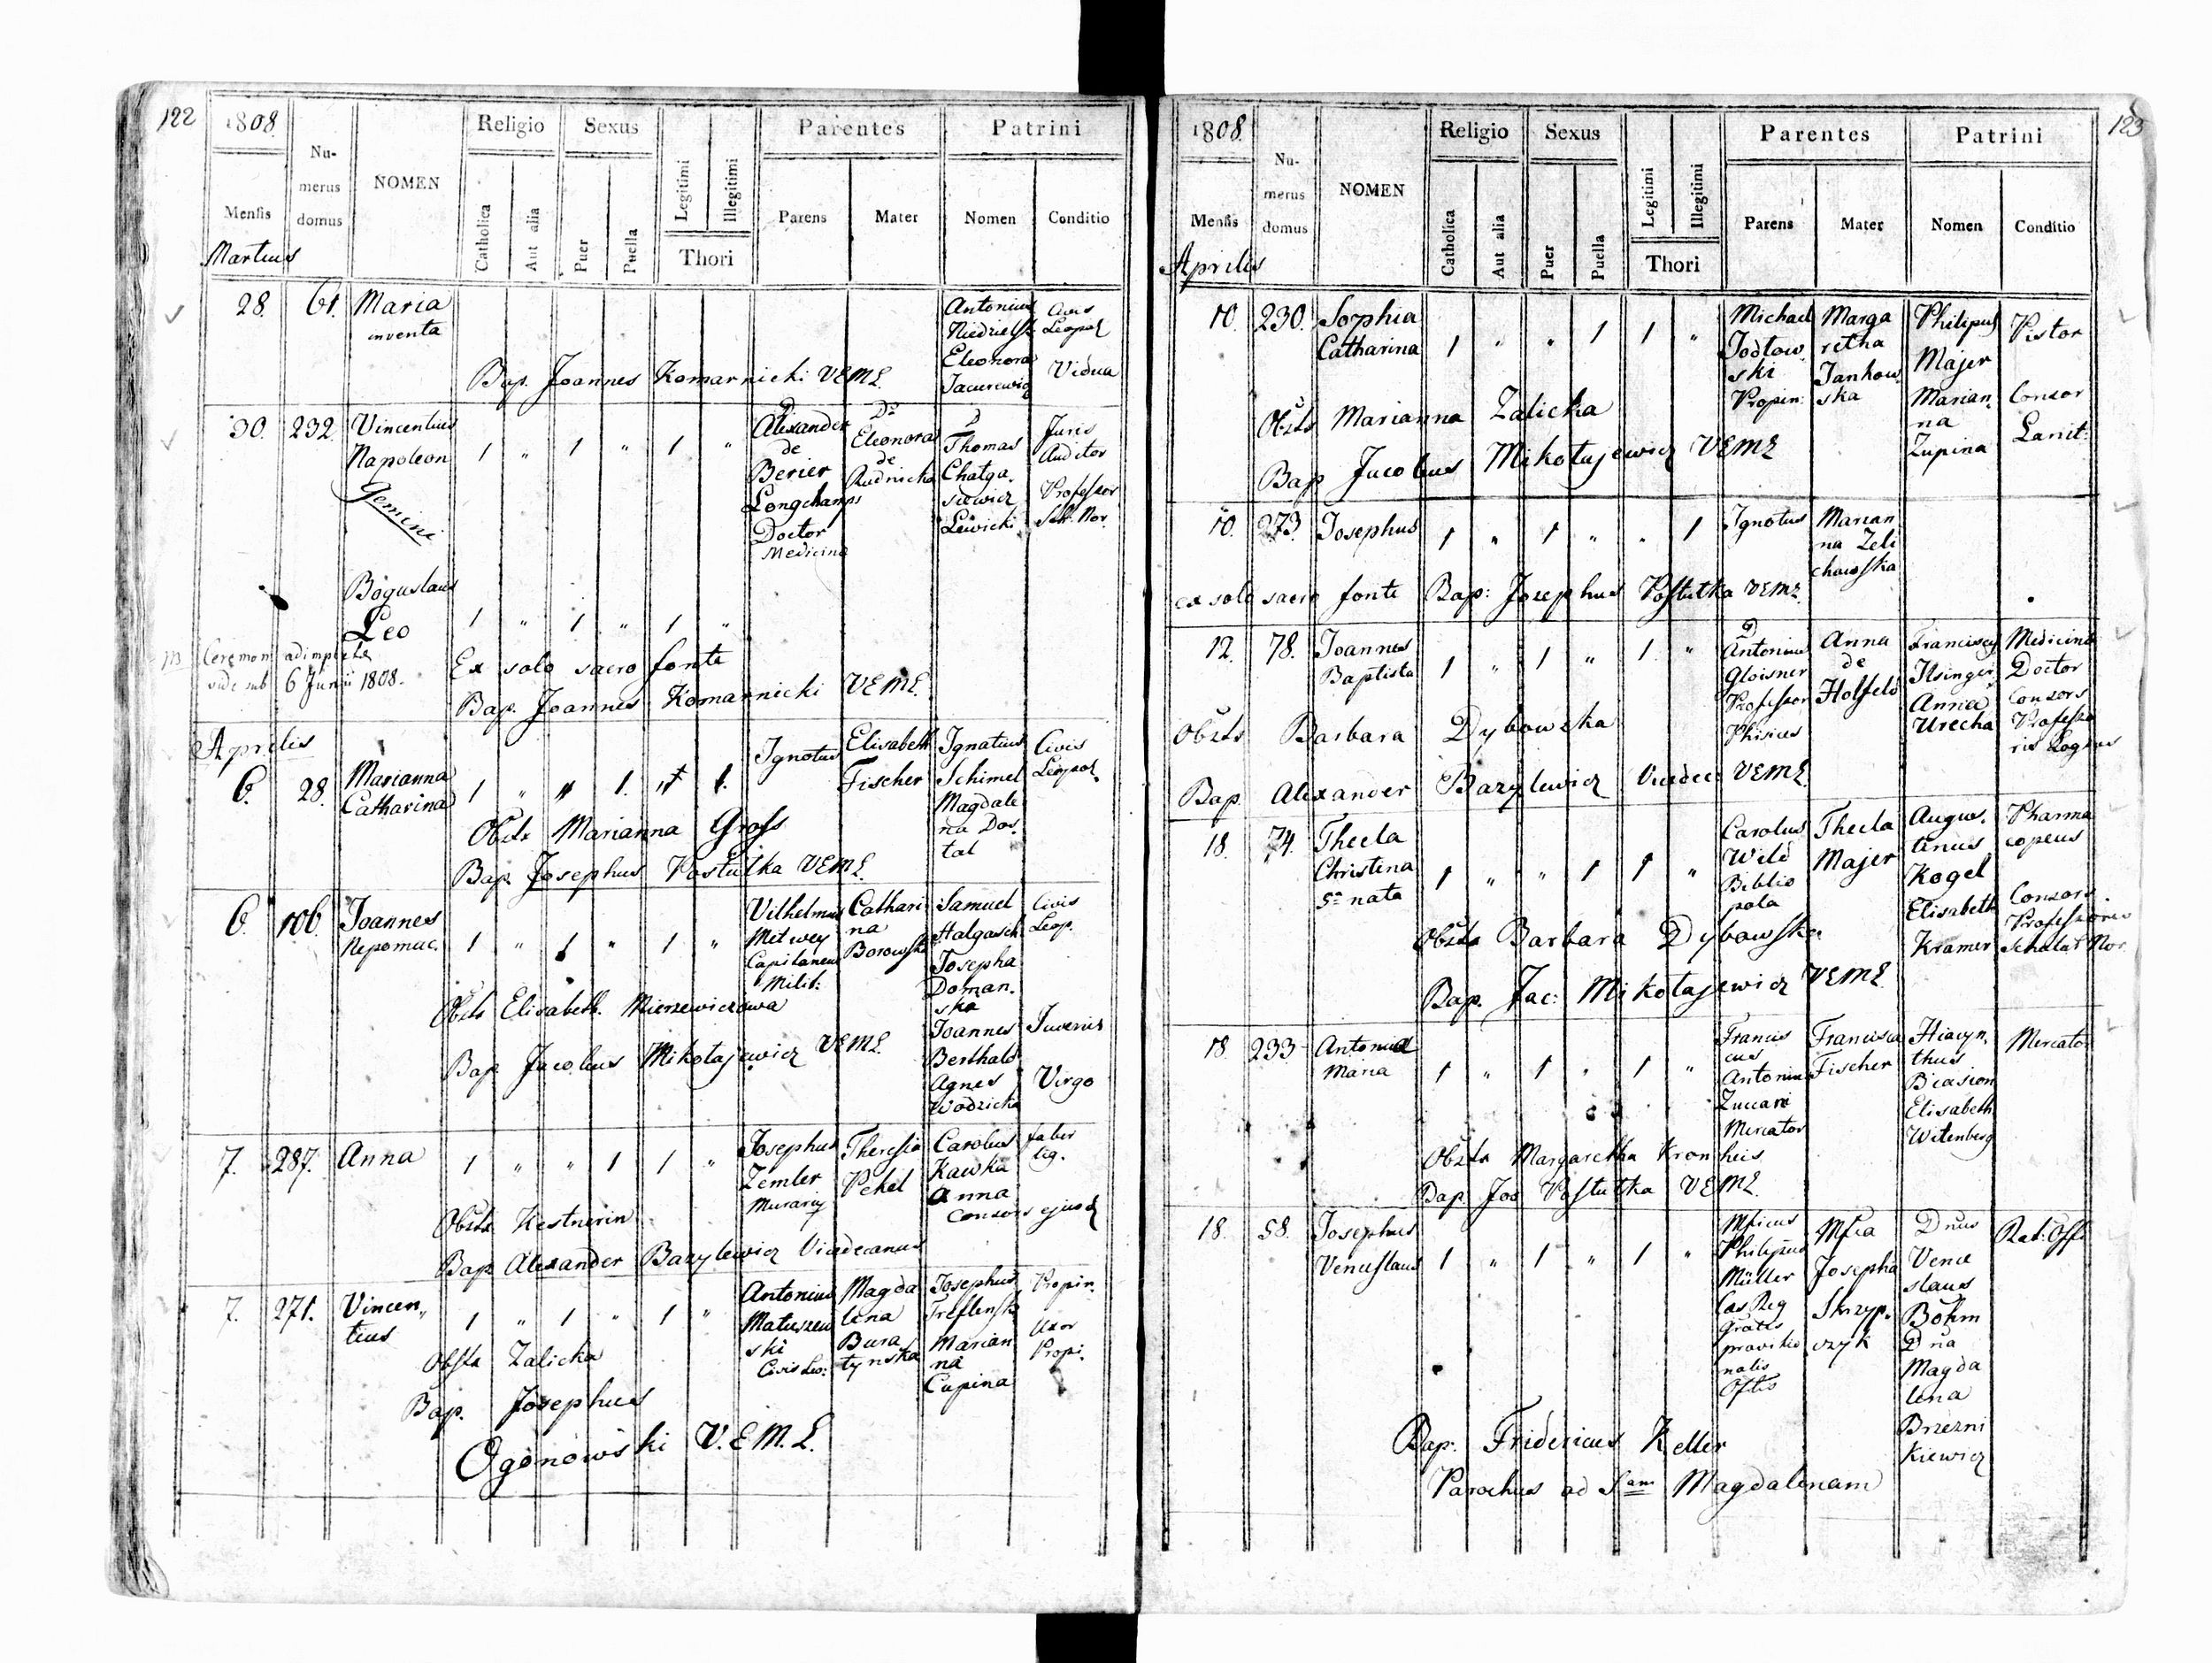 122
1808.
Numerus domus
NOMEN
Religio
Sexus
Parentes
Patrini
Mensis
Catholica
Aut alia
Puer
Puella
Legitimi
Illegitimi
Thori
Parens
Mater
Nomen
Conditio
Martius
28. 61. Maria
inventa
Antonius
Eleonora
Civis
Leopol
Vidua
Bap. Joannes Komarnicki VEML.
30. 232. Vincentius
Napoleon
Gemini
1 " 1 " 1 "
Alexander
de
Berier
Longchamps
Doctor
Medicina
Eleonora
de
Rudnicka
Thomas
Lewicki
Juris
Auditor
Professor
Boguslaus
Leo
1 " 1 " 1 "
adimpleta
vide sub 6 Junii 1808.
Ex solo sacro fonte
Bap. Joannes Komarnicki VEML.
Aprilis
6. 28. Marianna
Catharina
Ignotus
Elisabeth
Fischer
Ignatius
Schimel
Magdale
na Dos.
tal
Civis
Leopol
Obstx Marianna Gross
Bap. Josephus Postulka VEML.
6. 106. Joannes
Nepomuc.
1 " 1 " 1 "
Vilhelmus
Metwey
Capitaneus
Milit:
Cathari
na
Borowska
Samuel
Halgasch
Josepha
Doman.
ska
Joannes
Berthald
Agnes
Wodzicka
Civis
Leop.
Juvenis
Virgo
Obstx Elisabeth. Mierzewiczowa
Bap. Jacobus Mikotajewicz VEML.
7. 287. Anna
1 " " 1 1 "
Josephus
Zemler
Murariq
Theresia
Pekel
Carolus
Kawka
Anna
consors ejusd
faber
lig.
Obstx Kestnerin
Bap. Alexander Bazylewicz Vicedecanus
7. 271. Vincen„
tius
1 " 1 " 1 "
Antonius
Matuszew
ski
Civis Leo:
Magda
lena
Bura
tynska
Josephus
Marian
na
Cupina
Propin.
Uxor
Propi.
Obstx Zalicka
Bap. Josephus
Ogonowski V.E.M.L.
123
1808.
Numerus domus
NOMEN
Religio
Sexus
Parentes
Patrini
Mensis
Catholica
Aut alia
Puer
Puella
Legitimi
Illegitimi
Thori
Parens
Mater
Nomen
Conditio
Aprilis
10. 230. Sophia
Catharina
1 " " 1 1 "
Michael
Jodlow
ski
Propin:
Marga
retha
Jankow
ska
Philipus
Majer
Marian.
na
Zupina
Pistor
Consor
Lanit:
Obstx Marianna Zalicka
Bap Jacobus Mikotajewicz VEML
10. 273. Josephus
1 " 1 " " 1
Ignotus
Marian
na Zeli
chowska
ex solo sacro fonte Bap: Josephus Postutka VEML.
12. 78. Joannes
Baptista
1 " 1 " 1 "
Antonius
Gloisner
Professor
Phisices
Anna
de
Holfeld
Franciscq
Anna
Urecha
Medicina
Doctor
Consors
Professo
Obstx Barbara Dybowska
Bap. Alexander Bazylewicz Vicedec VEML
18. 74. Thecla
Christina
5ta nata
1 " " 1 1 "
Carolus
Wild
Biblio
pola
Thecla
Majer
Augus.
tinus
Kogel
Elisabeth
Kramer
Pharma
copeus
Consors
Professoris
Scholar Nor
Obstx Barbara Dybowska
Bap. Jac: Mikotajewicz VEML
18. 233. Antonius
Maria
1 " 1 " 1 "
Francis
cus
Antonius
Zuccani
Mercator
Francisca
Fischer
Hiacyn.
thus
Elisabeth
Witenberg
Mercator
Obstx Margaretha Kronheis
Bap Jos Postutka VEML.
18. 58. Josephus
Venceslaus
1 " 1 " 1 "
Philipus
Müller
Josepha
Skrzyp.
czyk
Dnus
Vence
slaus
Böhm
Dna
Magda
lena
Brzezni
kiewicz
Rat: Offi
Bap. Fridericus Keller
Parochus ad Sam Magdalenam